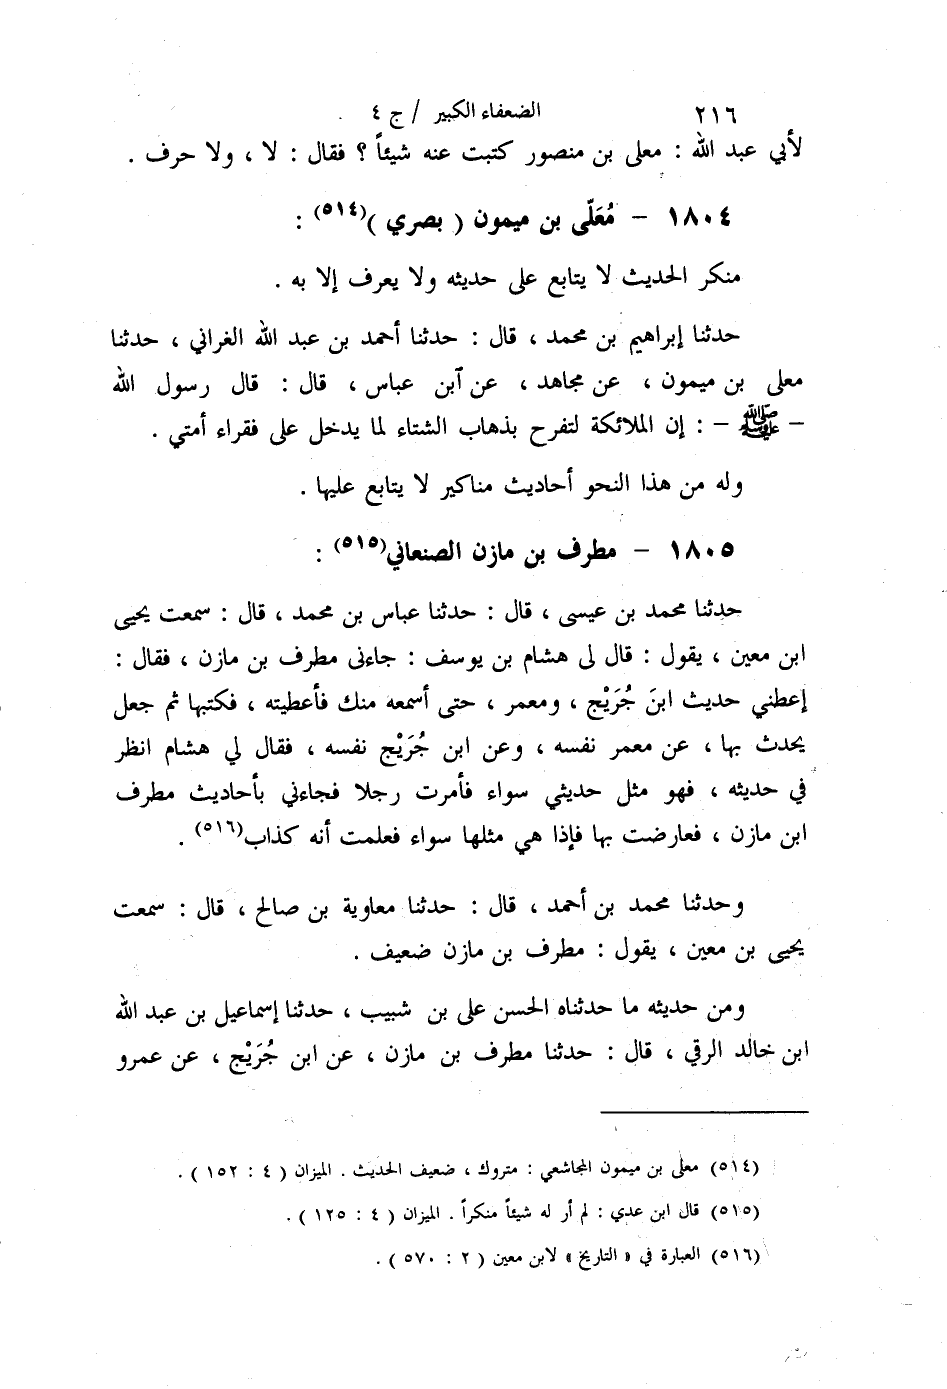 ٢١٦ الضعفاء الكبير / ج ٤
لأبي عبد الله : معلى بن منصور كتبت عنه شيئاً ؟ فقال : لا ، ولا حرف .
١٨٠٤ – مُعَلّى بن ميمون ( بصري )(٥١٤) :
منكر الحديث لا يتابع على حديثه ولا يعرف إلا به .
حدثنا إبراهيم بن محمد ، قال : حدثنا أحمد بن عبد الله الغراني ، حدثنا
معلى بن ميمون ، عن مجاهد ، عن آبن عباس ، قال : قال رسول الله
– ﷺ – : إن الملائكة لتفرح بذهاب الشتاء لما يدخل على فقراء أمتي .
وله من هذا النحو أحاديث مناكير لا يتابع عليها .
١٨٠٥ – مطرف بن مازن الصنعاني(٥١٥) :
حدثنا محمد بن عيسى ، قال : حدثنا عباس بن محمد ، قال : سمعت يحيى
ابن معين ، يقول : قال لى هشام بن يوسف : جاءنى مطرف بن مازن ، فقال :
إعطني حديث ابنَ جُرَيْج ، ومعمر ، حتى أسمعه منك فأعطيته ، فكتبها ثم جعل
يحدث بها ، عن معمر نفسه ، وعن ابن جُرَيْج نفسه ، فقال لي هشام انظر
في حديثه ، فهو مثل حديثي سواء فأمرت رجلا فجاءني بأحاديث مطرف
ابن مازن ، فعارضت بها فإذا هي مثلها سواء فعلمت أنه كذاب(٥١٦) .
وحدثنا محمد بن أحمد ، قال : حدثنا معاوية بن صالح ، قال : سمعت
يحيى بن معين ، يقول : مطرف بن مازن ضعيف .
ومن حديثه ما حدثناه الحسن على بن شبيب ، حدثنا إسماعيل بن عبد الله
ابن خالد الرقي ، قال : حدثنا مطرف بن مازن ، عن ابن جُرَيْج ، عن عمرو
(٥١٤) معلى بن ميمون المجاشعي : متروك ، ضعيف الحديث . الميزان ( ٤ : ١٥٢ ) .
(٥١٥) قال ابن عدي : لم أر له شيئاً منكراً . الميزان ( ٤ : ١٢٥ ) .
(٥١٦) العبارة في « التاريخ » لابن معين ( ٢ : ٥٧٠ ) .